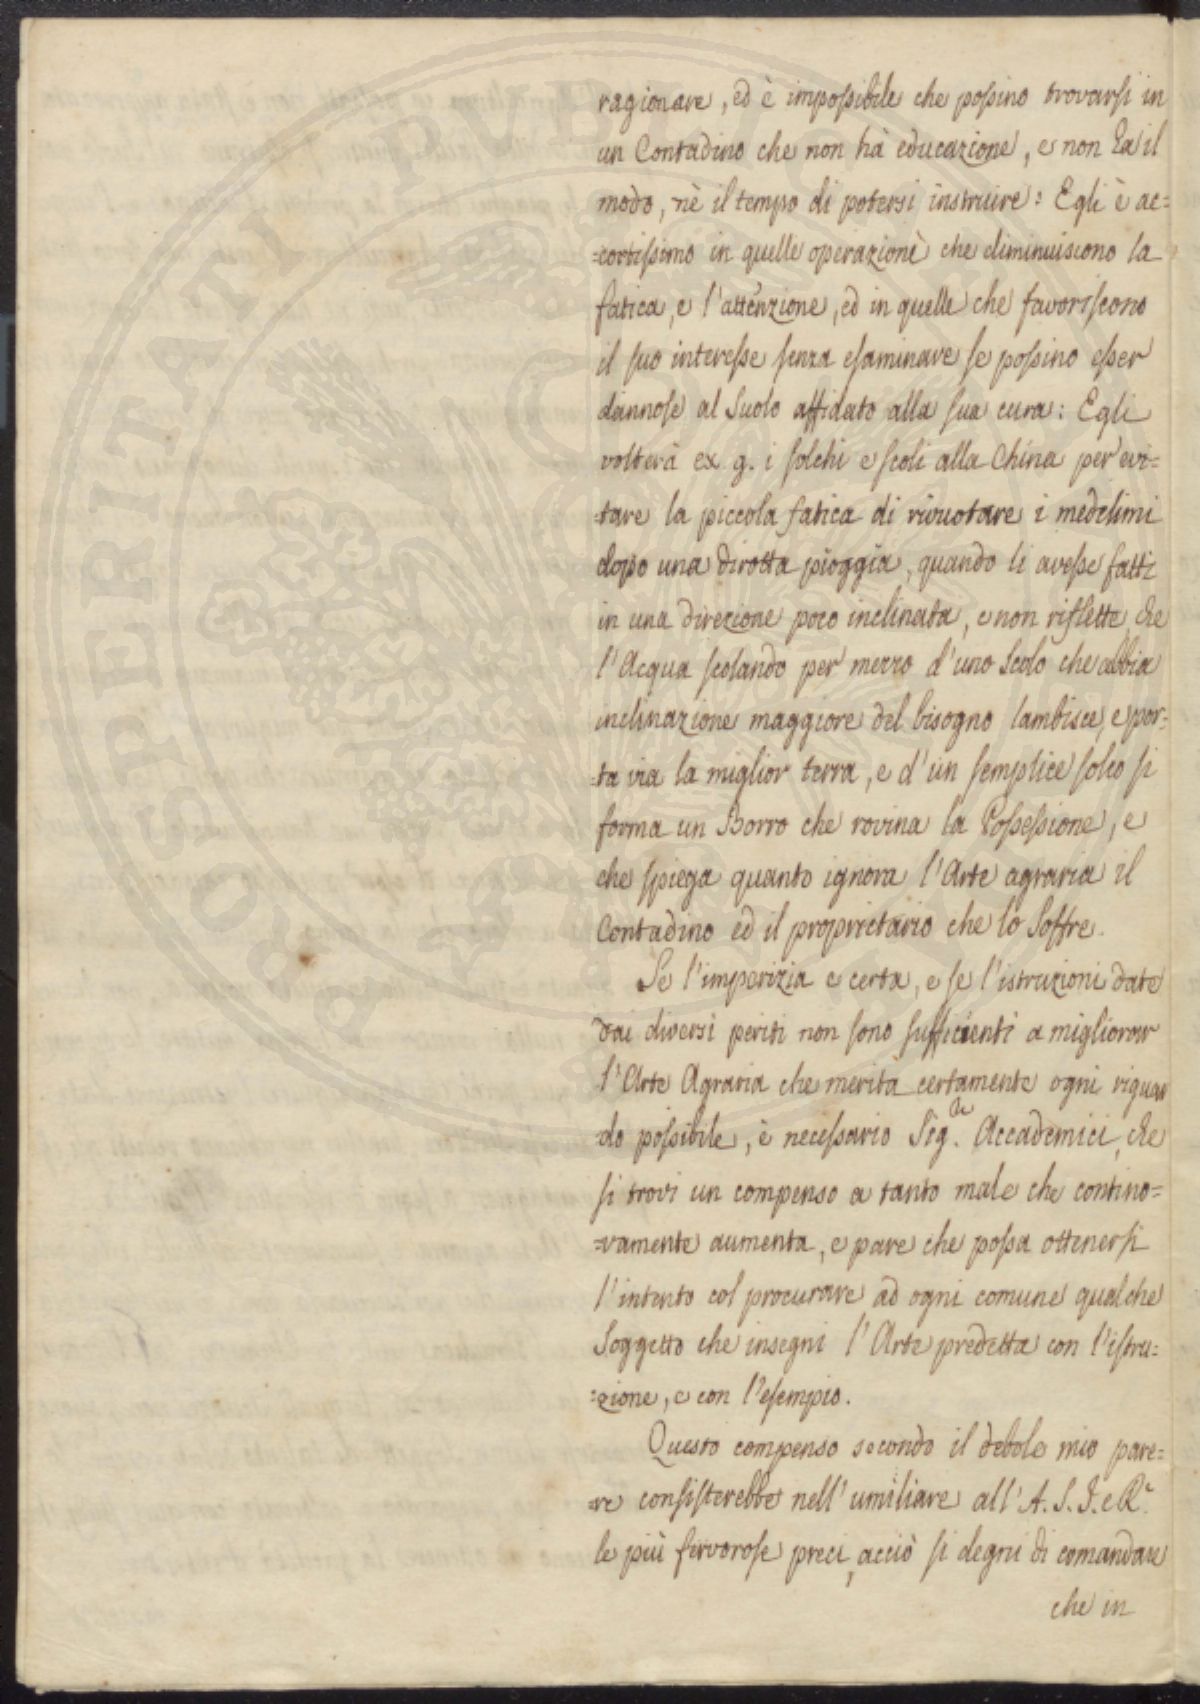 ragionare, ed è impossibile che possino trovarsi in
un Contadino che non hà educazione, e non ha il
modo, nè il tempo di potersi instruire: Egli è ac=
=cortissimo in quelle operazioni che diminuiscono la
fatica, e l'attenzione, ed in quelle che favoriscono
il suo interesse senza esaminare se possino esser
dannose al Suolo affidato alla sua cura: Egli
volterà ex. g. i solchi e scoli alla China per evi=
=tare la piccola fatica di rivuotare i medesimi
dopo una dirotta pioggia, quando li avesse fatti
in una direzione poco inclinata, e non riflette che
l'Acqua scolando per mezzo d'uno Scolo che abbia
inclinazione maggiore del bisogno lambisce, e por=
=ta via la miglior terra, e d'un semplice solco si
forma un Borro che rovina la Possessione, e
che spiega quanto ignora l'Arte agraria il
Contadino ed il proprietario che lo Soffre.
Se l'imperizia e certa, e se l'istruzioni date
dai diversi periti non sono sufficienti a migliorar
l'Arte Agraria che merita certamente ogni riguar
do possibile, è necessario Sig.ri Accademici, che
si trovi un compenso a tanto male che contino=
=vamente aumenta, e pare che possa ottenersi
l'intento col procurare ad ogni comune qualche
Soggetto che insegni l'Arte predetta con l'istru=
=zione, e con l'esempio.
Questo compenso secondo il debole mio pare=
=re consisterebbe nell'umiliare all'A. S. I. e R.e
le più fervorose preci, acciò si degni di comandare
che in
PROSPERITATI PUBLICAE